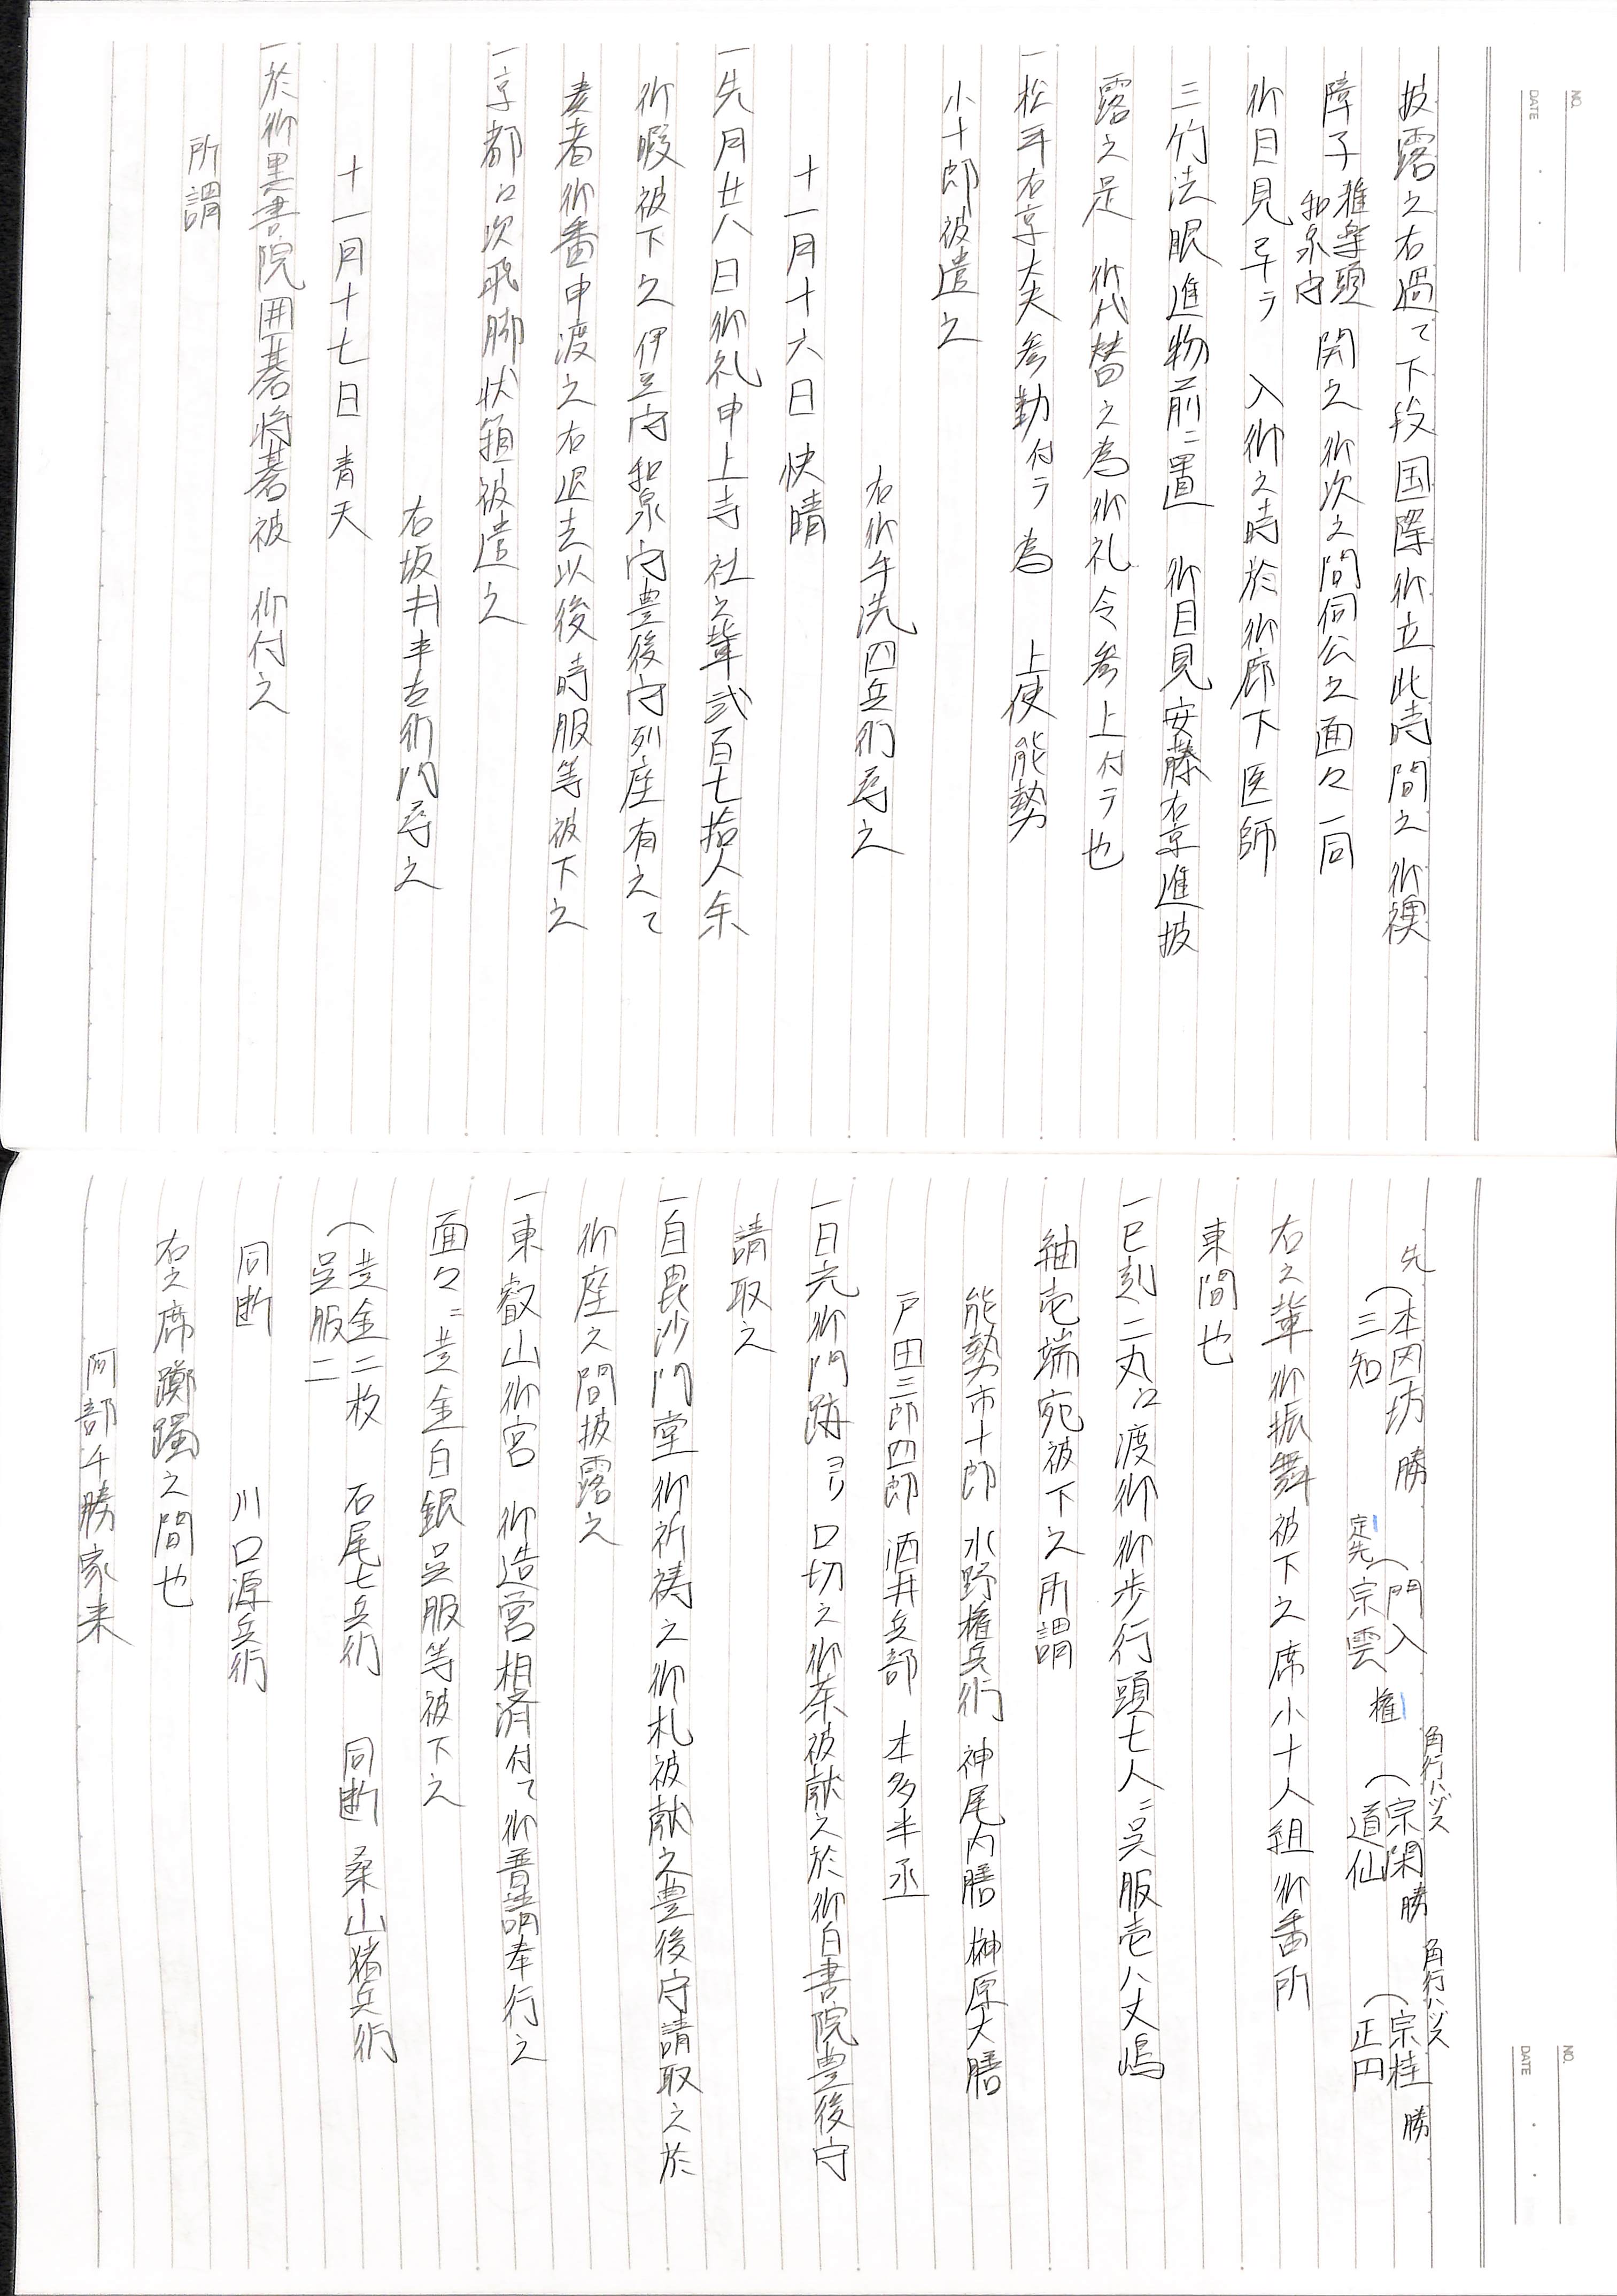 NO.
DATE
披露之右過て下段国際御立此時間之御襖
障子 雅楽頭 和泉守 開之御次之間伺公之面々一同
御目見早テ 入御之時於御廊下医師
三竹法眼進物前ニ置 御目見安藤右京進披
露之是 御代替之為御礼令参上付テ也
一松平右京大夫参勤付テ為 上使能勢
小十郎被遣之
右御手洗四兵衛尋之
十一月十六日 快晴
一先月廿八日御礼申上寺社之輩弐百七拾人余
御暇被下之伊豆守和泉守豊後守列座有之て
奏者御番申渡之右退去以後時服等被下之
一京都江次飛脚状箱被遣之
右坂井半左衛門尋之
十一月十七日 青天
一於御黒書院囲碁将碁被 仰付之
所謂
NO.
DATE
先 本因坊 勝 三知
門入 定先 宗雲 権
角行ハヅス 宗閑 勝 道仙
角行ハヅス 宗桂 勝 正円
右之輩御振舞被下之席小十人組御番所
東間也
一巳刻二丸江渡御御歩行頭七人ニ呉服壱八丈嶋
紬壱端宛被下之所謂
能勢市十郎 水野権兵衛 神尾内膳 榊原大膳
戸田三郎四郎 酒井兵部 本多半丞
一日光御門跡ヨリ口切之御茶被献之於御白書院豊後守
請取之
一自毘沙門堂御祈祷之御札被献之豊後守請取之於
御座之間披露之
一東叡山御宮 御造営相済付て御普請奉行之
面々ニ黄金白銀呉服等被下之
黄金二枚 呉服二 石尾七兵衛 同断 桑山猪兵衛
同断 川口源兵衛
右之席躑躅之間也
阿部千勝家来